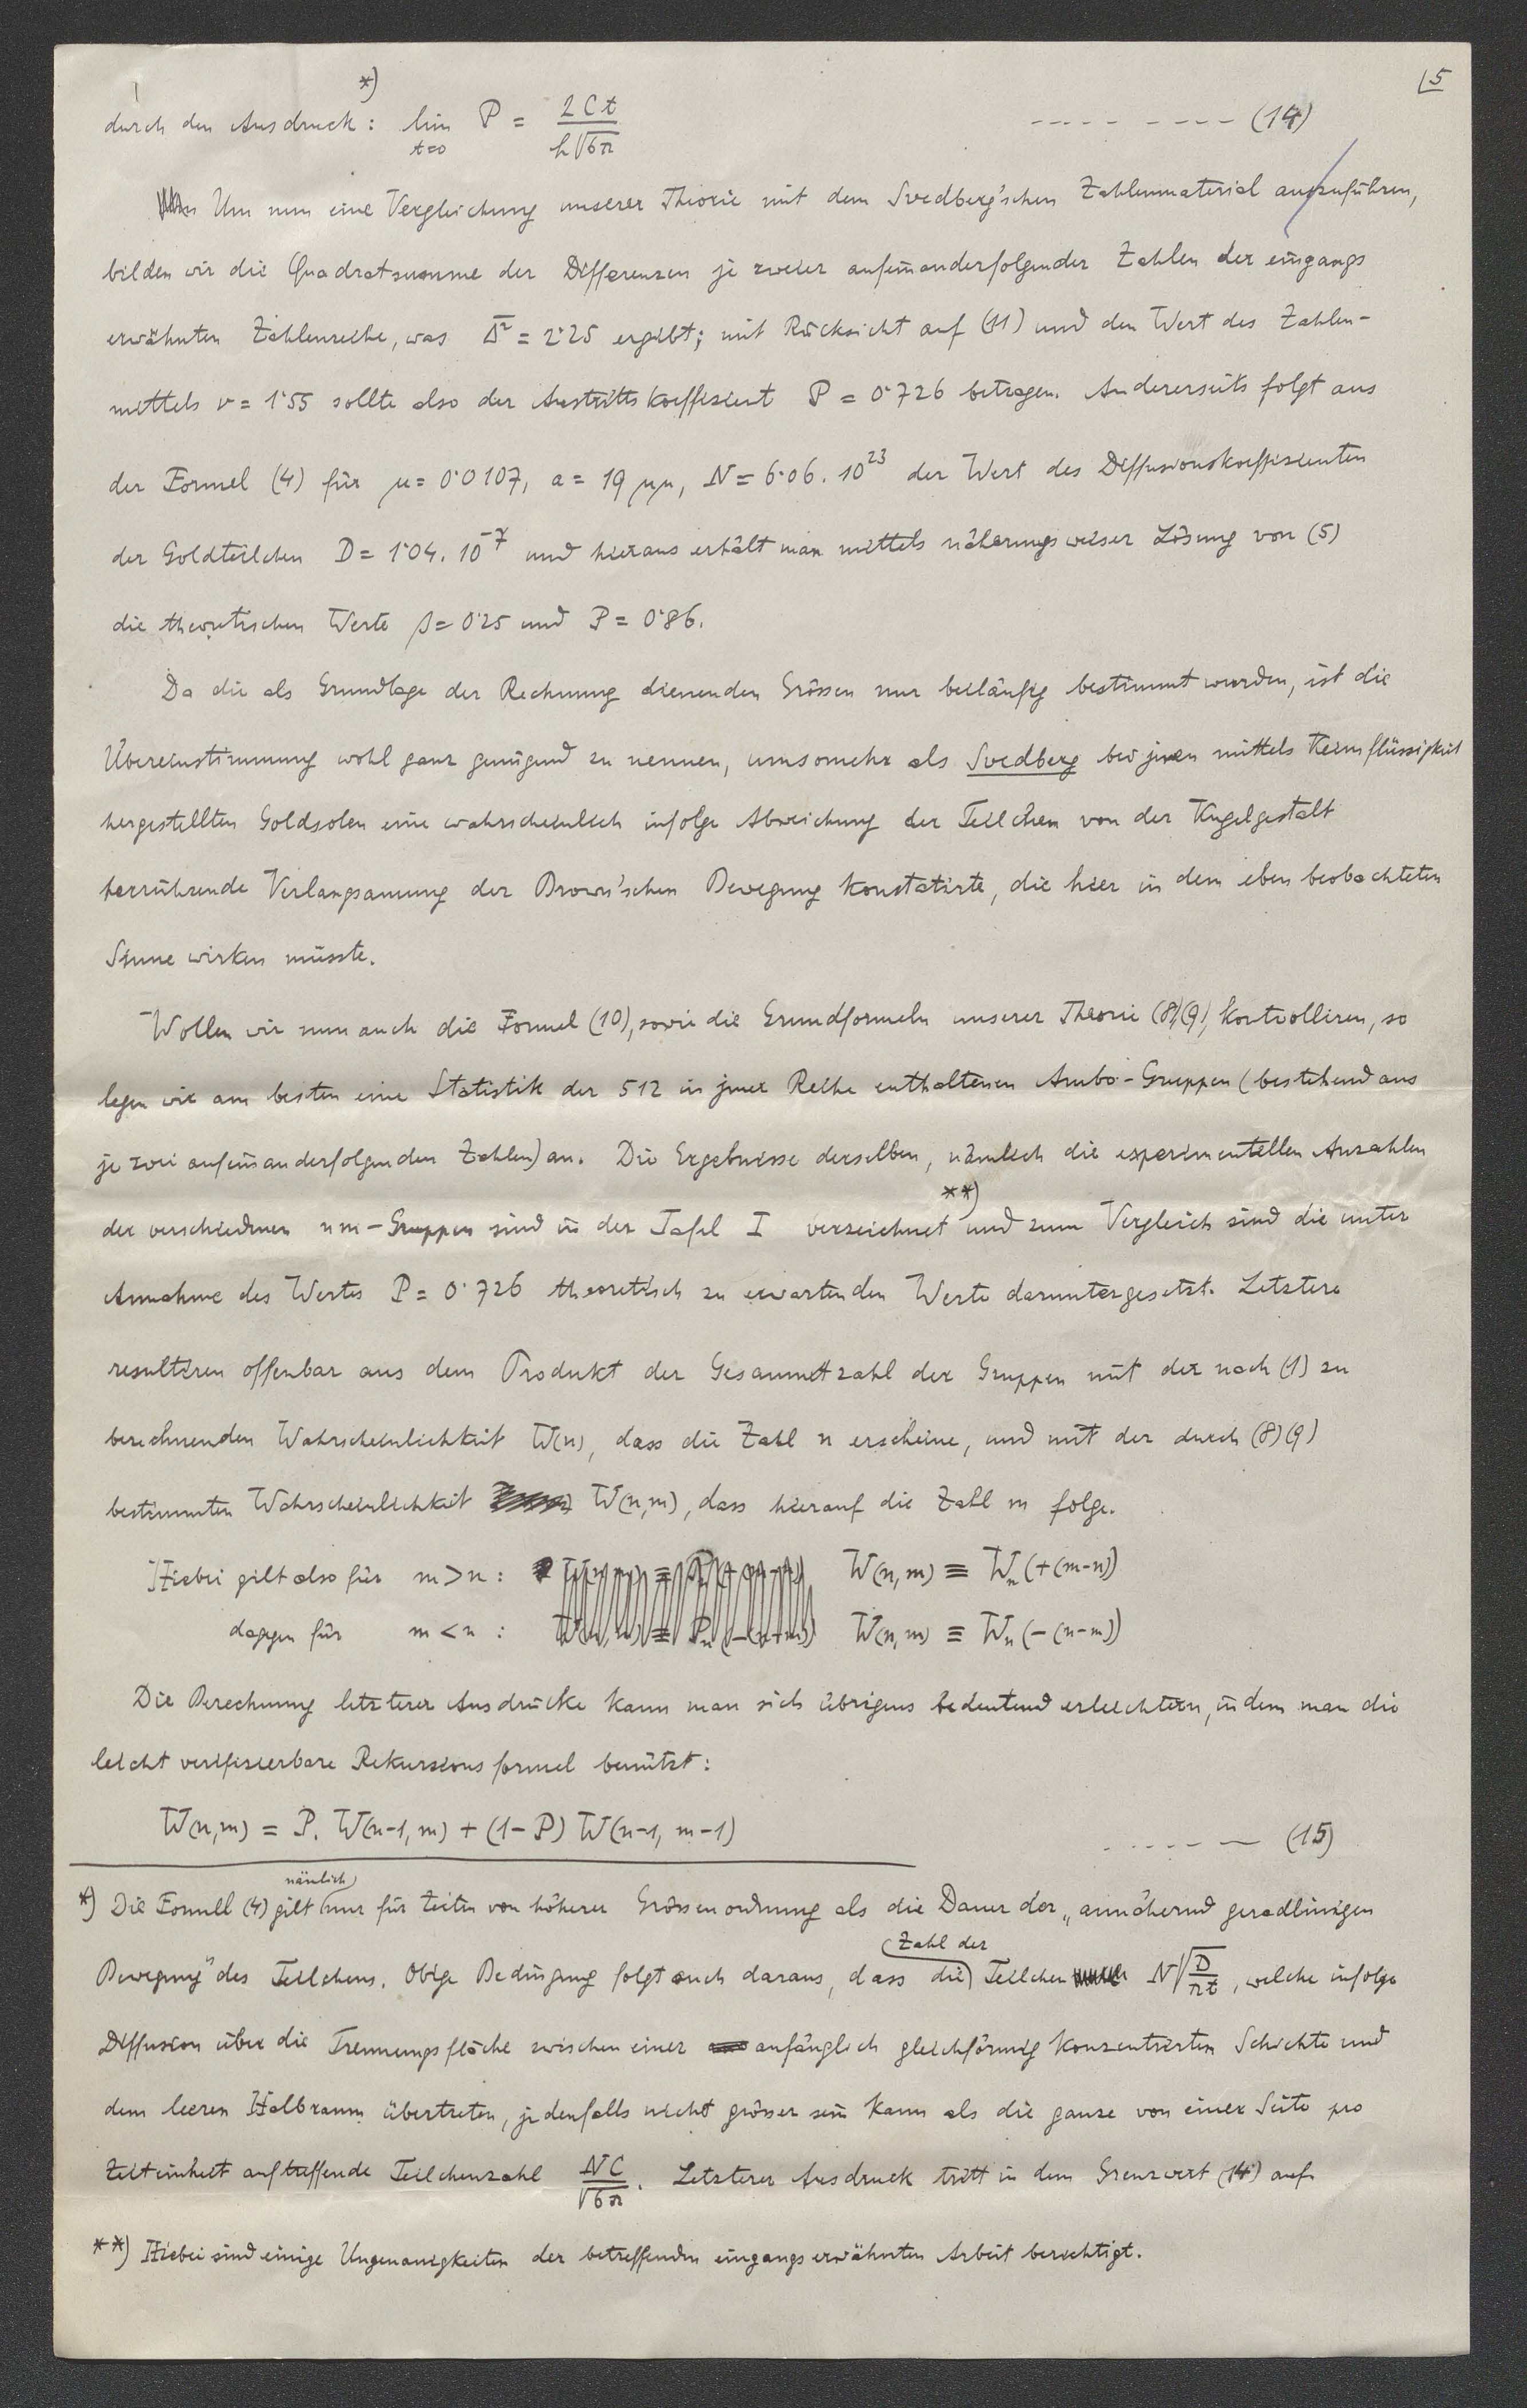 5
durch den Ausdruck: *) lim t=0 P = 2Ct / h√6π - - - - - - - - - (14)
Um nun eine Vergleichung unserer Theorie mit dem Svedberg'schen Zahlenmaterial auszuführen,
bilden wir die Quadratsumme der Differenzen je zweier aufeinanderfolgender Zahlen der eingangs
erwähnten Zahlenreihe, was Δ̅² = 2·25 ergibt; mit Rücksicht auf (11) und den Wert des Zahlen-
mittels ν = 1·55 sollte also der Austrittskoeffizient P = 0·726 betragen. Andererseits folgt aus
der Formel (4) für μ = 0·0107, a = 19 μμ, N = 6·06 . 10²³ der Wert des Diffusionskoeffizienten
der Goldteilchen D = 1·04 . 10⁻⁷ und hieraus erhält man mittels näherungsweiser Lösung von (5)
die theoretischen Werte β = 0·25 und P = 0·86.
Da die als Grundlage der Rechnung dienenden Grössen nur beiläufig bestimmt wurden, ist die
Übereinstimmung wohl ganz genügend zu nennen, umsomehr als Svedberg bei jenen mittels Keimflüssigkeit
hergestellten Goldsolen eine wahrscheinlich infolge Abweichung der Teilchen von der Kugelgestalt
herrührende Verlangsamung der Brown'schen Bewegung konstatirte, die hier in dem eben beobachteten
Sinne wirken müsste.
Wollen wir nun auch die Formel (10), sowie die Grundformeln unserer Theorie (8)(9), kontrolliren, so
legen wir am besten eine Statistik der 512 in jener Reihe enthaltenen Ambo-Gruppen (bestehend aus
je zwei aufeinanderfolgenden Zahlen) an. Die Ergebnisse derselben, nämlich die experimentellen Anzahlen
der verschiedenen nm-Gruppen sind in der Tafel I verzeichnet **) und zum Vergleich sind die unter
Annahme des Wertes P = 0·726 theoretisch zu erwartenden Werte daruntergesetzt. Letztere
resultiren offenbar aus dem Produkt der Gesammtzahl der Gruppen mit der nach (1) zu
berechnenden Wahrscheinlichkeit W(n), dass die Zahl n erscheine, und mit der durch (8)(9)
bestimmten Wahrscheinlichkeit W(n,m), dass hierauf die Zahl m folge.
Hiebei gilt also für m > n : W(n,m) ≡ Wₙ(+(m-n))
dagegen für m < n : W(n,m) ≡ Wₙ(-(n-m))
Die Berechnung letzterer Ausdrücke kann man sich übrigens bedeutend erleichtern, indem man die
leicht verifizierbare Rekursionsformel benützt:
W(n,m) = P. W(n-1, m) + (1-P) W(n-1, m-1) - - - - - (15)
*) Die Formel (4) gilt nämlich nur für Zeiten von höherer Grössenordnung als die Dauer der „annähernd geradlinigen
Bewegung" des Teilchens. Obige Bedingung folgt auch daraus, dass die Zahl der Teilchen N√D/πt, welche infolge
Diffusion über die Trennungsfläche zwischen einer anfänglich gleichförmig konzentrirten Schichte und
dem leeren Halbraum übertreten, jedenfalls nicht grösser sein kann als die ganze von einer Seite pro
Zeiteinheit auftreffende Teilchenzahl NC / √6π. Letzterer Ausdruck tritt in dem Grenzwert (14) auf.
**) Hiebei sind einige Ungenauigkeiten der betreffenden eingangs erwähnten Arbeit berichtigt.